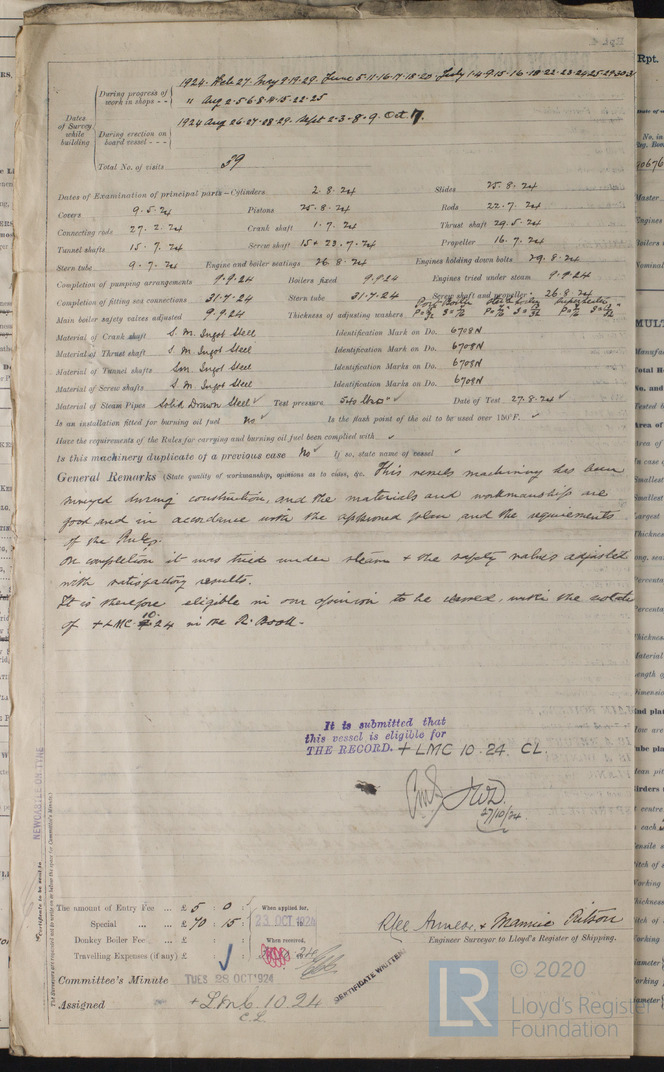 Rpt.
Dates of Survey while building
During progress of work in shops - -
1924. Feb 27. May 9.19.29. June 5.11.16.17.18.20. July 1.4.9.15.16.18.22.23.24.25.29.30.31
" Aug 2.5.6.8.11.15.22.25
During erection on board vessel - - -
1924 Aug 26.27.28.29. Sept 2.3.8.9. Oct 7.
Total No. of visits 39
Dates of Examination of principal parts—Cylinders 2.8.24 Slides 25.8.24
Covers 9.5.24 Pistons 25.8.24 Rods 22.7.24
Connecting rods 27.2.24 Crank shaft 1.7.24 Thrust shaft 29.5.24
Tunnel shafts 15.7.24 Screw shaft 15 & 23.7.24 Propeller 16.7.24
Stern tube 9.7.24 Engine and boiler seatings 26.8.24 Engines holding down bolts 29.8.24
Completion of pumping arrangements 9.9.24 Boilers fixed 9.9.24 Engines tried under steam 9.9.24
Completion of fitting sea connections 31.7.24 Stern tube 31.7.24 Screw shaft and propeller 26.8.24
Main boiler safety valves adjusted 9.9.24 Thickness of adjusting washers Port Boiler Star. Boiler Superheater
Material of Crank shaft S.M. Ingot Steel Identification Mark on Do. 6708N
Material of Thrust shaft S.M. Ingot Steel Identification Mark on Do. 6708N
Material of Tunnel shafts S.M. Ingot Steel Identification Marks on Do. 6708N
Material of Screw shafts S.M. Ingot Steel Identification Marks on Do. 6708N
Material of Steam Pipes Solid Drawn Steel ✓ Test pressure 540 lbs □" ✓ Date of Test 27.8.24 ✓
Is an installation fitted for burning oil fuel No ✓ Is the flash point of the oil to be used over 150°F. ✓
Have the requirements of the Rules for carrying and burning oil fuel been complied with ✓
Is this machinery duplicate of a previous case No ✓ If so, state name of vessel ✓
General Remarks (State quality of workmanship, opinions as to class, &c. This vessels machinery has been
surveyed during construction, and the materials and workmanship are
good and in accordance with the approved plan and the requirements
of the Rules.
On completion it was tried under steam & the safety valves adjusted
with satisfactory results.
It is therefore eligible in our opinion to be classed, with the notation
of + LMC 10.24 in the R. Book.
It is submitted that
this vessel is eligible for
THE RECORD. + LMC 10.24. CL.
JWD.
27/10/24
NEWCASTLE-ON-TYNE
Certificate to be sent to
The Surveyors are requested not to write on or below the space for Committee's Minute.
The amount of Entry Fee ... £ 5 : 0 : When applied for,
Special ... ... £ 70 : 15 : 23 OCT 1924
Donkey Boiler Fee ... £ : : When received,
Travelling Expenses (if any) £ : :
Engineer Surveyor to Lloyd's Register of Shipping.
Committee's Minute TUES 28 OCT 1924
CERTIFICATE WRITTEN
Assigned + L.M.C. 10.24
C.L.
LR © 2020
Lloyd's Register
Foundation